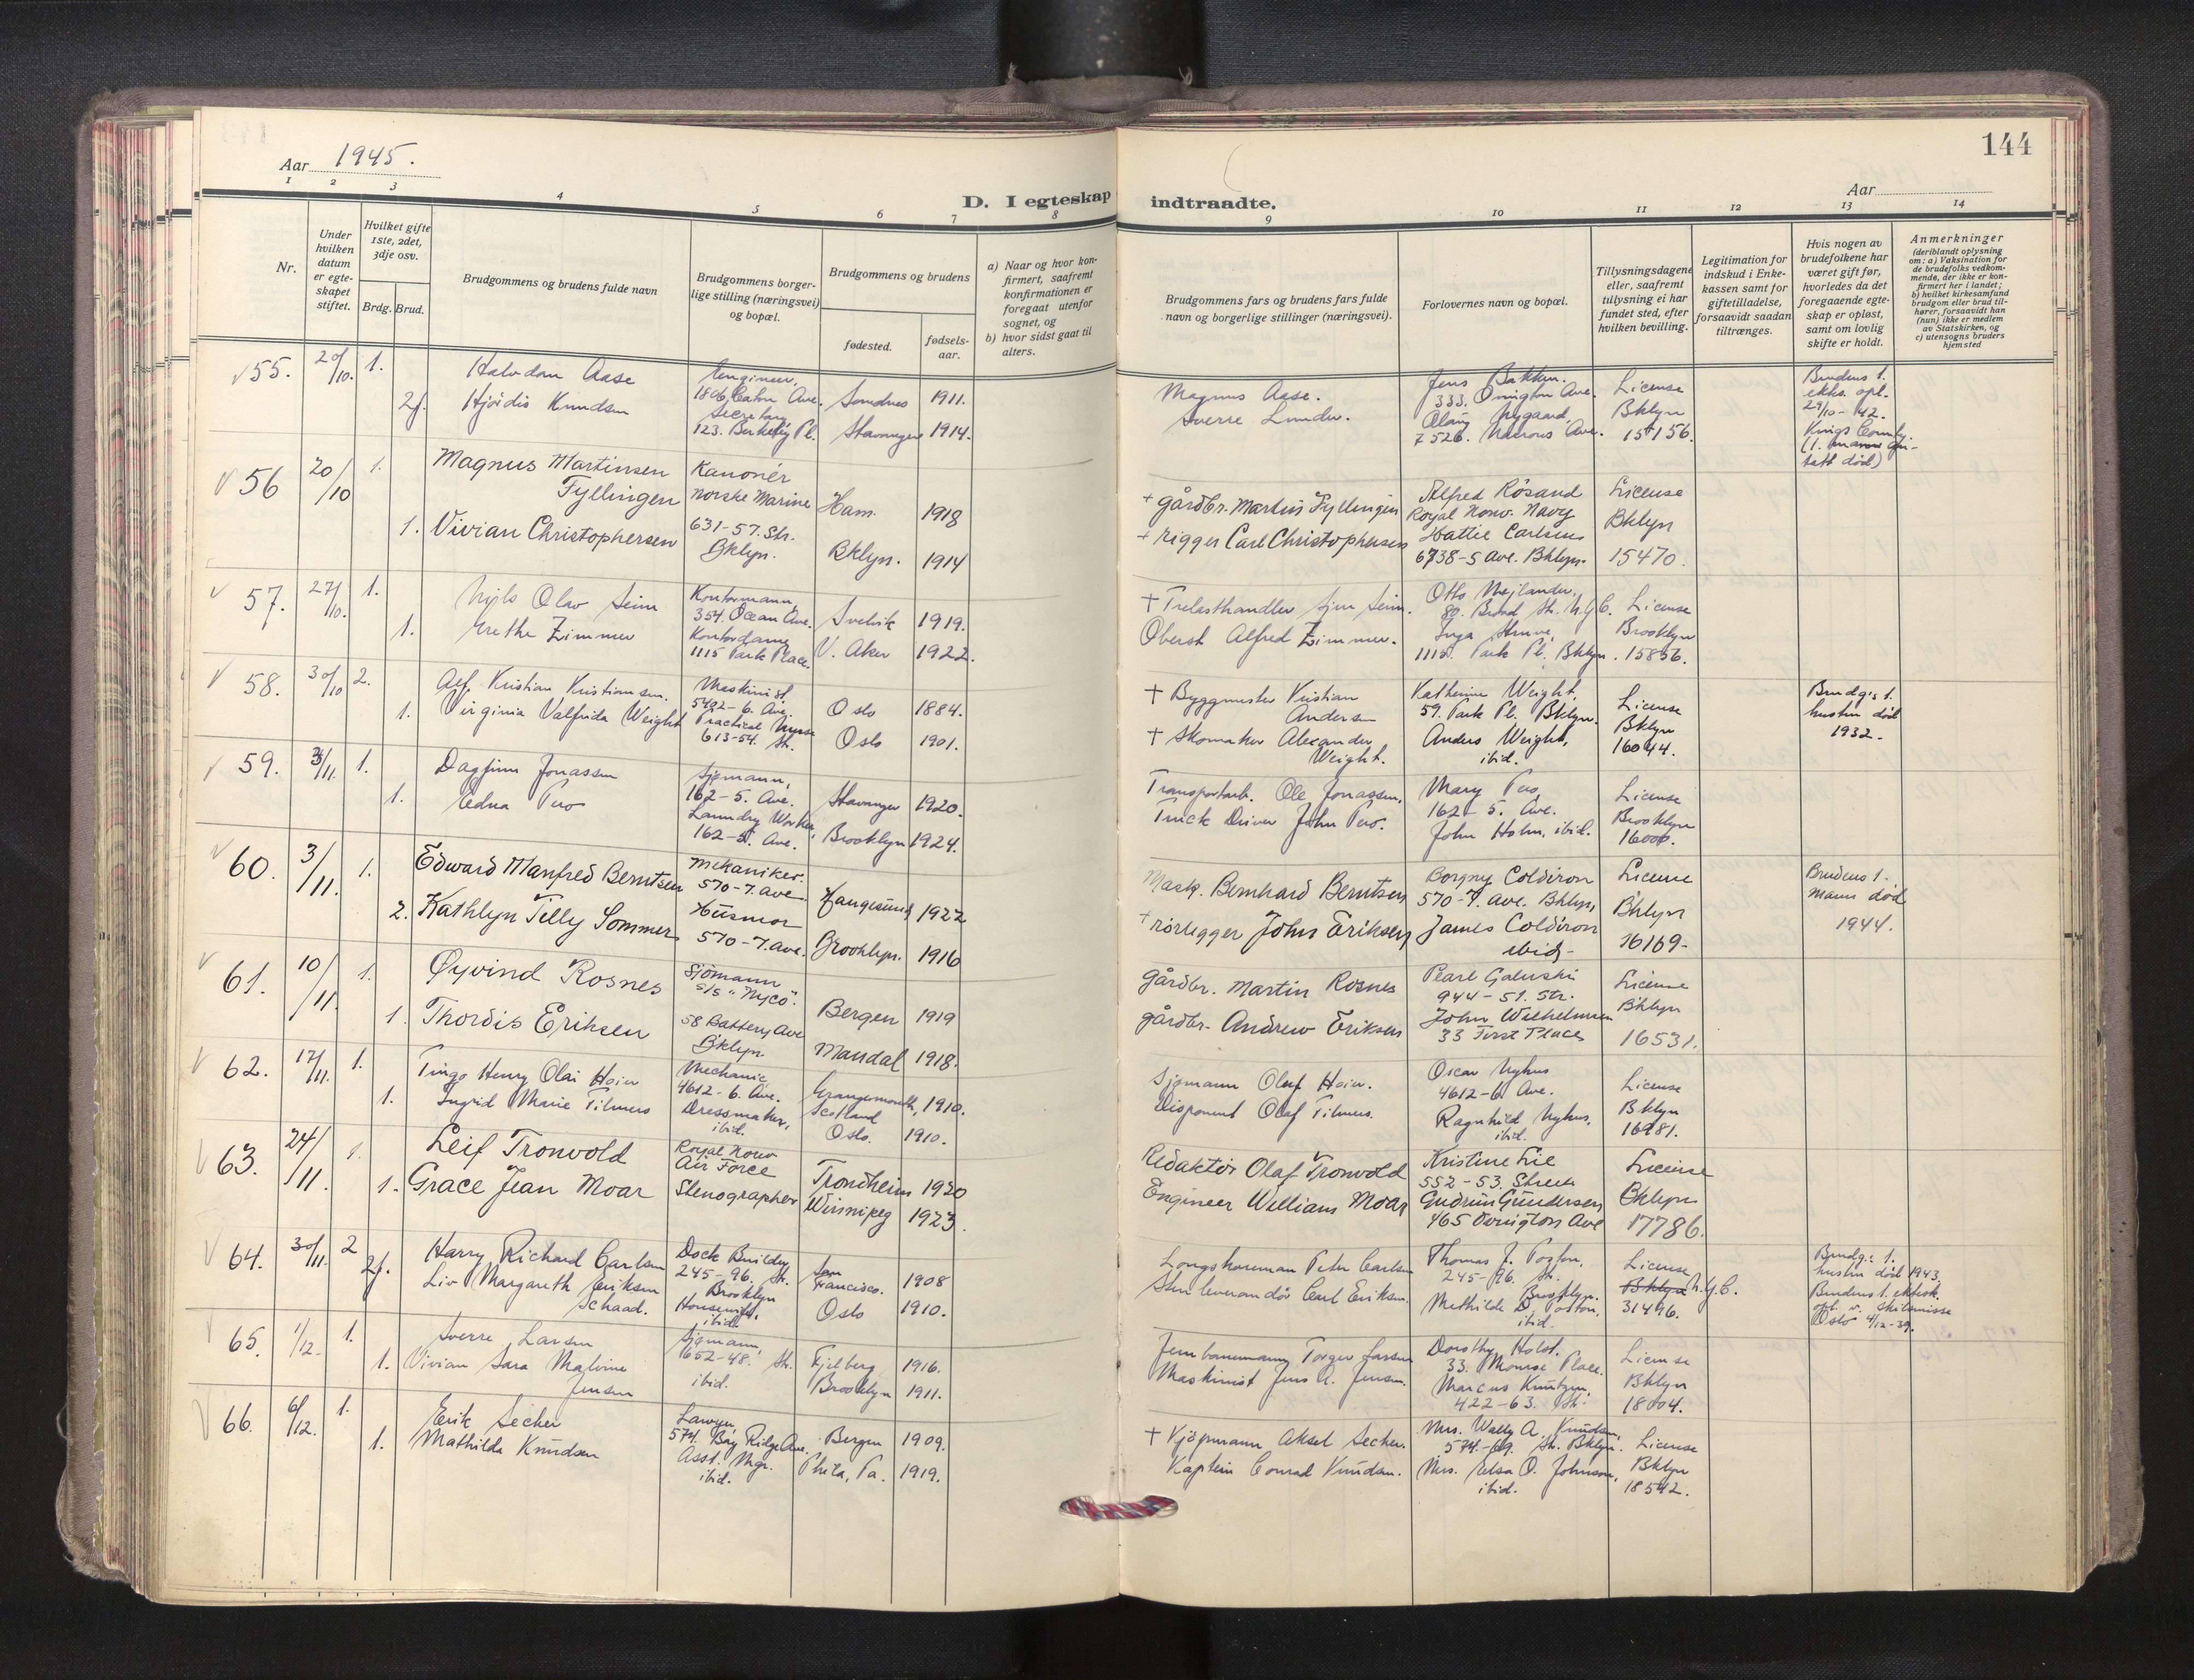 Aar 1945.
144
D. I egteskap indtraadte.
Aar
1 2 3 4 5 6 7 8 9 10 11 12 13 14
Nr.
Under hvilken datum er egteskapet stiftet.
Hvilket gifte 1ste, 2det, 3dje osv.
Brdg. Brud.
Brudgommens og brudens fulde navn
Brudgommens borgerlige stilling (næringsvei) og bopæl.
Brudgommens og brudens
fødested.
fødsels-aar.
a) Naar og hvor konfirmert, saafremt konfirmationen er foregaat utenfor sognet, og
b) hvor sidst gaat til alters.
Brudgommens fars og brudens fars fulde navn og borgerlige stillinger (næringsvei).
Forlovernes navn og bopæl.
Tillysningsdagene eller, saafremt tillysning ei har fundet sted, efter hvilken bevilling.
Legitimation for indskud i Enkekassen samt for giftetilladelse, forsaavidt saadan tiltrænges.
Hvis nogen av brudefolkene har været gift før, hvorledes da det foregaaende egteskap er opløst, samt om lovlig skifte er holdt.
Anmerkninger
(deriblandt oplysning om: a) Vaksination for de brudefolks vedkommende, der ikke er konfirmert her i landet; b) hvilket kirkesamfund brudgom eller brud tilhører, forsaavidt han (hun) ikke er medlem av Statskirken, og c) utensogns bruders hjemsted
55. 20/10. 1. Halvdan Aase Engineer, 1806 Caton Ave. Sandnes 1911. Magnus Aase. Jens Bakken. 333. Ovington Ave. License
2f. Hjördis Knudsen Secretary 123. Berkeley Pl. Stavanger 1914. Sverre Lunder. Olaug Nygaard, 7526. Narrows Ave. Bklyn 15156.
Brudens 1. ekts. opl. 29/10-42. Kings County. (1. mann død)
56 20/10 1. Magnus Martinsen Fyllingen Kanonér norske Marine Ham. 1918 + gårdbr. Martin Fyllingen Alfred Rösand Royal Norw. Navy License
1. Vivian Christophersen 631-57. Str. Bklyn. Bklyn. 1914 + rigger Carl Christophersen Hattie Carlsen 6738-5 Ave. Bklyn. Bklyn 15470.
57. 27/10. 1. Nils Olav Seim Kontormann, 354. Ocean Ave. Svelvik 1919. + Trelasthandler Sjur Seim. Otto Mejlander, 89. Broad Str. N.Y.C. License
1. Grethe Zimmer Kontordame, 1115 Park Place. V. Aker 1922. Oberst Alfred Zimmer. Inga Struve, 1115. Park Pl. Bklyn. Brooklyn 15856.
58. 30/10 2. Alf. Kristian Kristiansen. Maskinist, 5402-6. Ave. Oslo 1884. + Byggmester Kristian Andersen Katherine Weight, 59. Park Pl. Bklyn. License
1. Virginia Valfrida Weight Practical Nurse 613-54. Str. Oslo 1901. + Skomaker Alexander Weight. Anders Weight, ibid. Bklyn 16044.
Brudg:s 1. hustru død 1932.
59. 3/11. 1. Dagfinn Jonassen Sjømann, 162-5. Ave. Stavanger 1920. Transportarb. Ole Jonassen. Mary Pero, 162-5. Ave. License
1. Edna Pero Laundry Worker, 162-5. Ave. Brooklyn 1924. Truck Driver John Pero. John Holm, ibid. Brooklyn 16000.
60. 3/11. 1. Edward Manfred Berntsen mekaniker. 570-7. ave. Haugesund 1922 Mask. Bernhard Berntsen Borgny Coldiron 570-7. ave. Bklyn, License
2. Kathlyn Tilly Sommer Husmor 570-7. ave. Brooklyn. 1916 + rörlegger John Eriksen James Coldiron ibid- Bklyn 16169-
Brudens 1. mann død 1944.
61. 10/11. 1. Öyvind Rosnes Sjömann s/s "Nyco". Bergen 1919 Gårdbr. Martin Rosnes Pearl Galuski 944-51. Str. License
1. Thordis Eriksen 58 Battery Ave Bklyn. Mandal 1918. gårdbr. Andrew Eriksen John Wilhelmsen 33 First Place Bklyn 16531.
62. 17/11. 1. Tingo Henry Olai Hoier Mechanic 4612-6. Ave. Grangemouth, Scotland 1910. Sjømann Olaf Hoier. Oscar Nyhus 4612-6. Ave. License
1. Ingrid Marie Tilmers Dressmaker, ibid. Oslo. 1910. Disponent Olaf Tilmers. Ragnhild Nyhus, ibid. Bklyn 16981.
63. 24/11. 1. Leif Tronvold Royal Norw Air Force Trondheim 1920 Redaktör Olaf Tronvold Kristine Lie 552-53. Street License
1. Grace Jean Moar Stenographer Winnipeg 1923. Engineer William Moar Gudrun Gundersen 465 Ovington Ave Bklyn 17786.
64. 30/11. 2 Harry Richard Carlsen Dock Builder 245-96. St. Brooklyn San Francisco. 1908 Longshoreman Peter Carlsen Thomas J. 245-96. Str. Brooklyn. License
2f. Liv Margareth Eriksen Schaad. Housewife, ibid. Oslo 1910. Skinleverandör Carl Eriksen. Mathilde D. ibid. Bklyn N.Y.C. 31496.
Brudg.: 1. hustru død 1943. Brudens 1. ektesk. opl. v. skilsmisse Oslo 4/12-39.
65. 1/12. 1. Sverre Larsen Sjømann, 652-48. Str. Fjelberg 1916. Jernbanemann Torger Larsen Dorothy Holst. 33. Monroe Place. License
1. Vivian Sara Malvine Jensen ibid. Brooklyn 1911. Maskinist Jens A. Jensen. Marcus Knutzen, 422-63. Str. Bklyn 18004.
66. 6/12. 1. Erik Secher Lawyer, 574. Bay Ridge Ave. Bergen 1909. + Kjøpmann Aksel Secher. Mrs. Wally A. Knudsen, 574.-69. Str. Bklyn. License
1. Mathilde Knudsen Asst. Mgr. ibid. Phila, Pa. 1919. Kaptein Conrad Knudsen. Mrs. Elsa O. Johnson, ibid. Bklyn 18542.